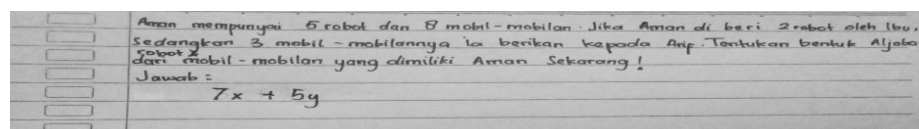 Aman mempunyai 5 robot dan 8 mobil-mobilan. Jika Aman di beri 2 robot oleh Ibu.
Sedangkan 3 mobil-mobilannya ia berikan kepada Arip. Tentukan bentuk Aljaba
robot &
dari mobil-mobilan yang dimiliki Aman Sekarang!
Jawab =
7x + 5y